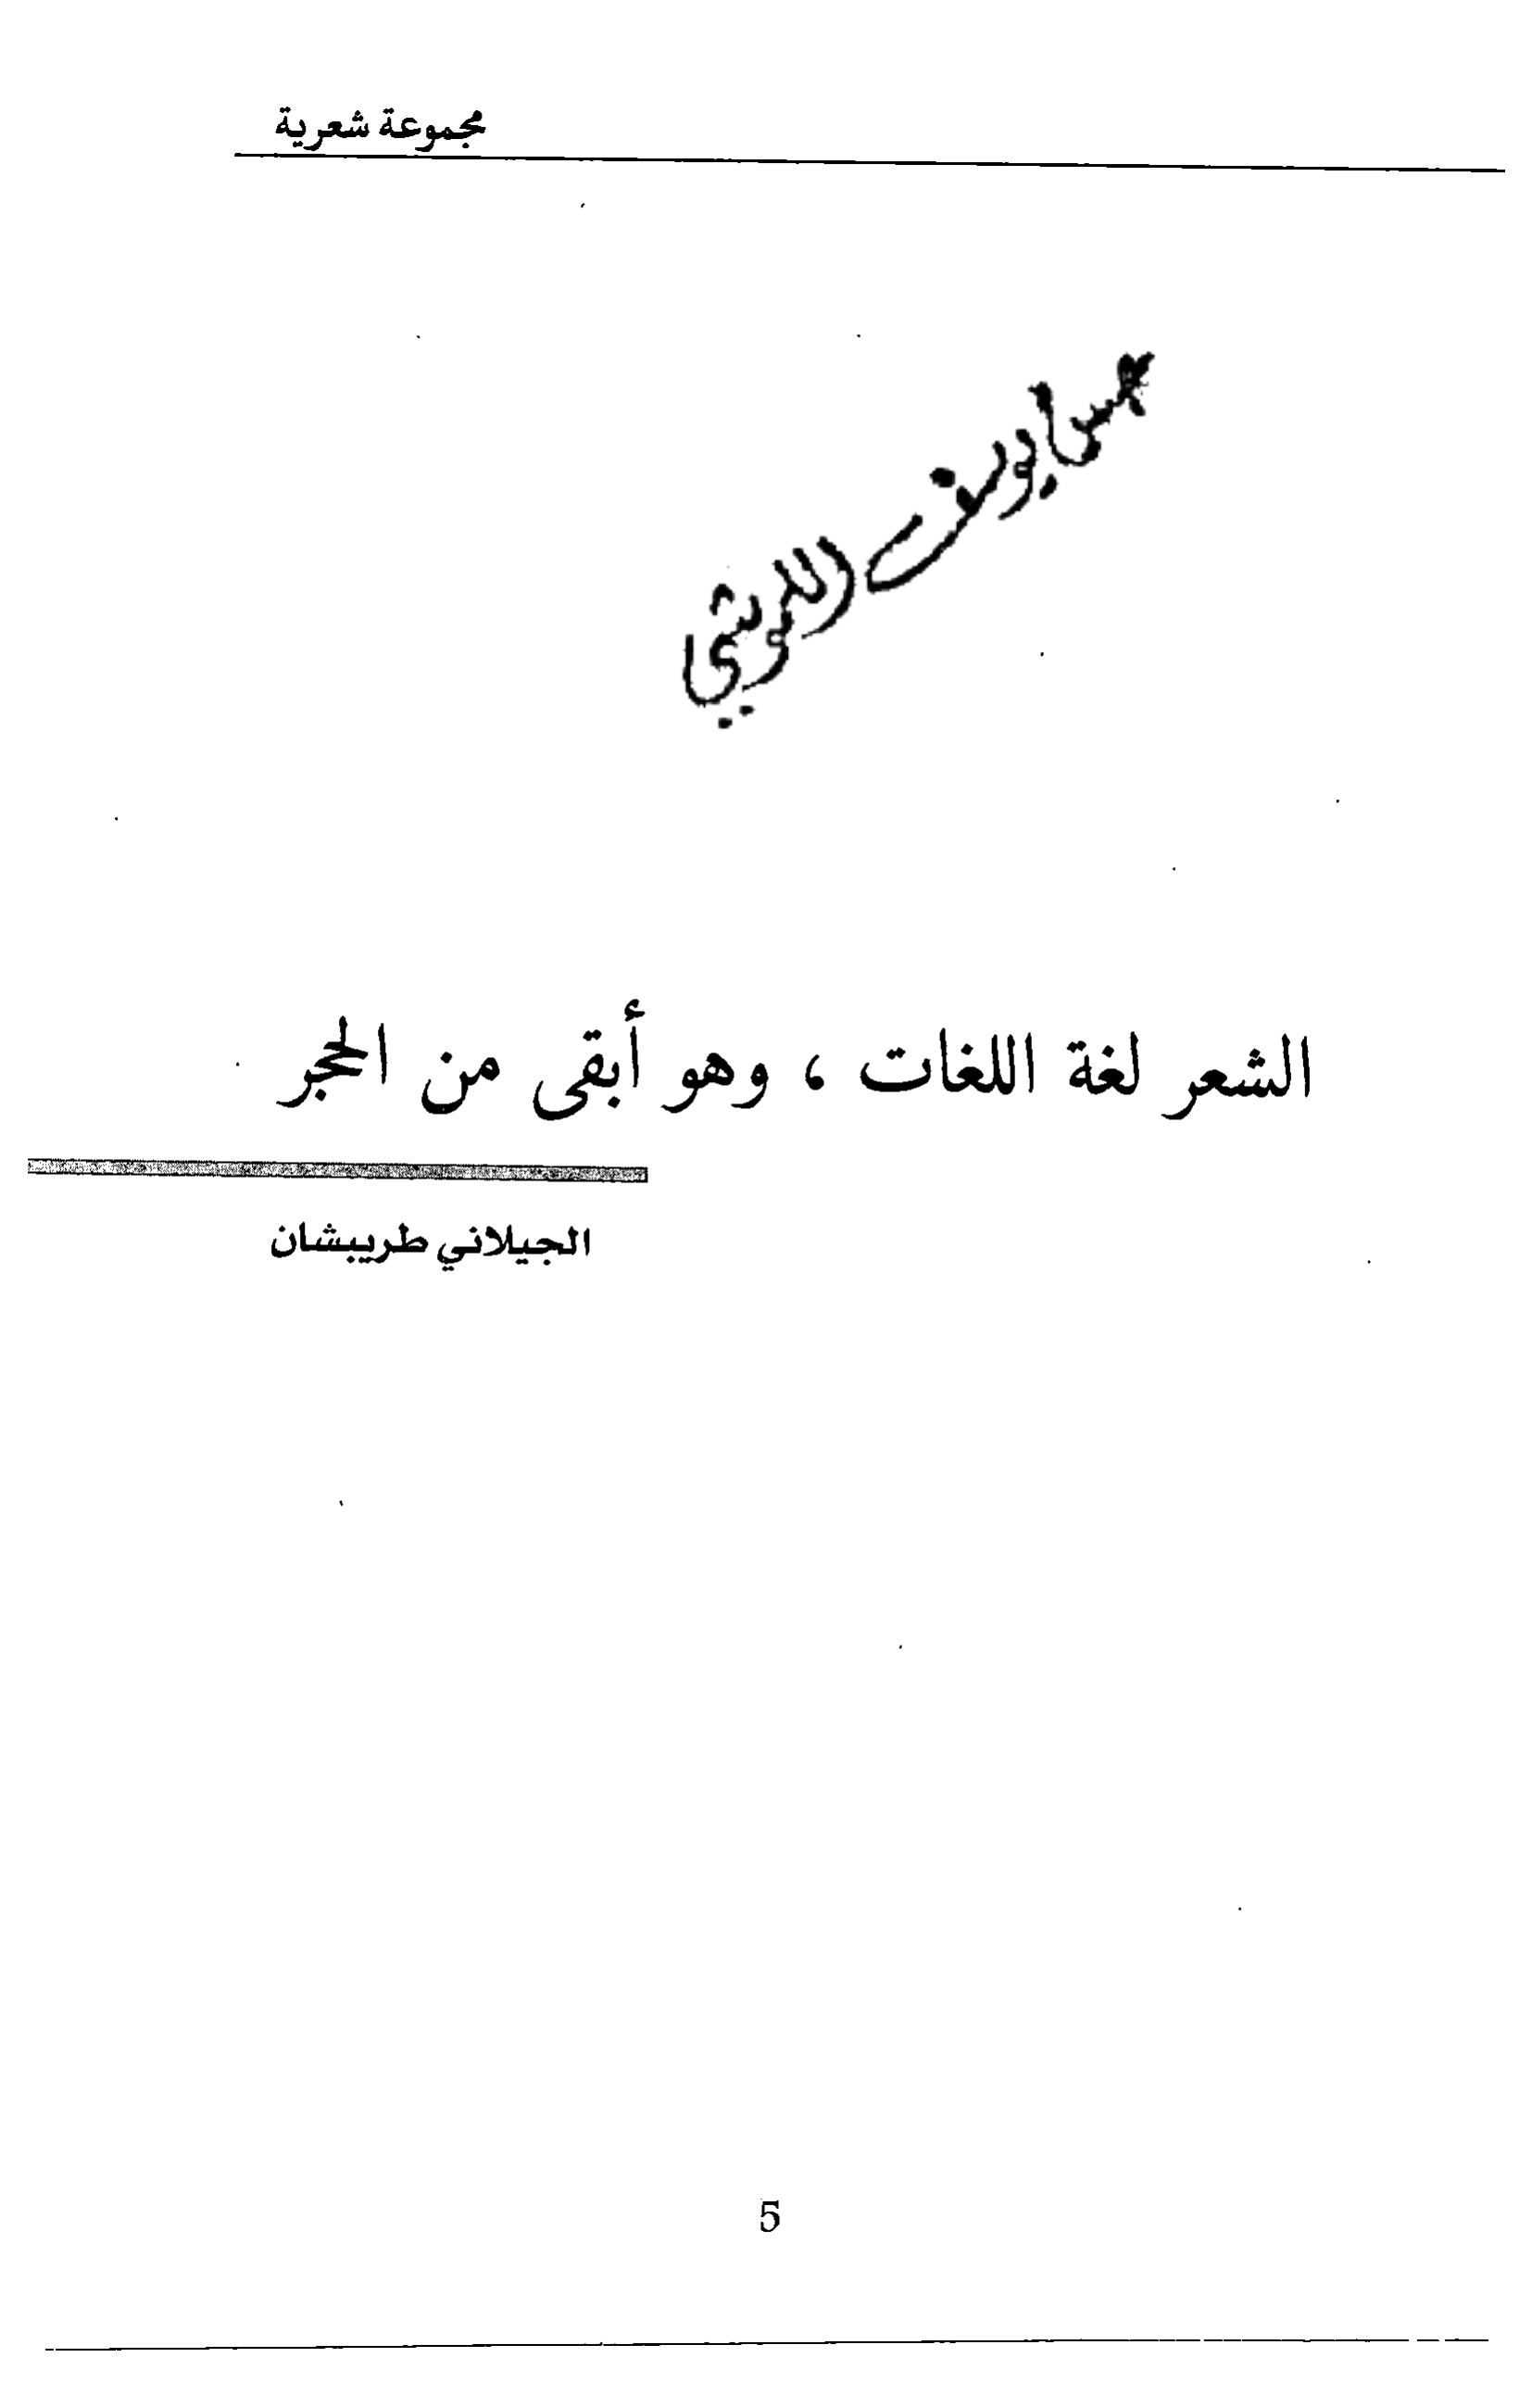 مجموعة شعرية
يوسف
الشعر لغة اللغات ، وهو أبقى من الحجر
الجيلاني طريبشان
5